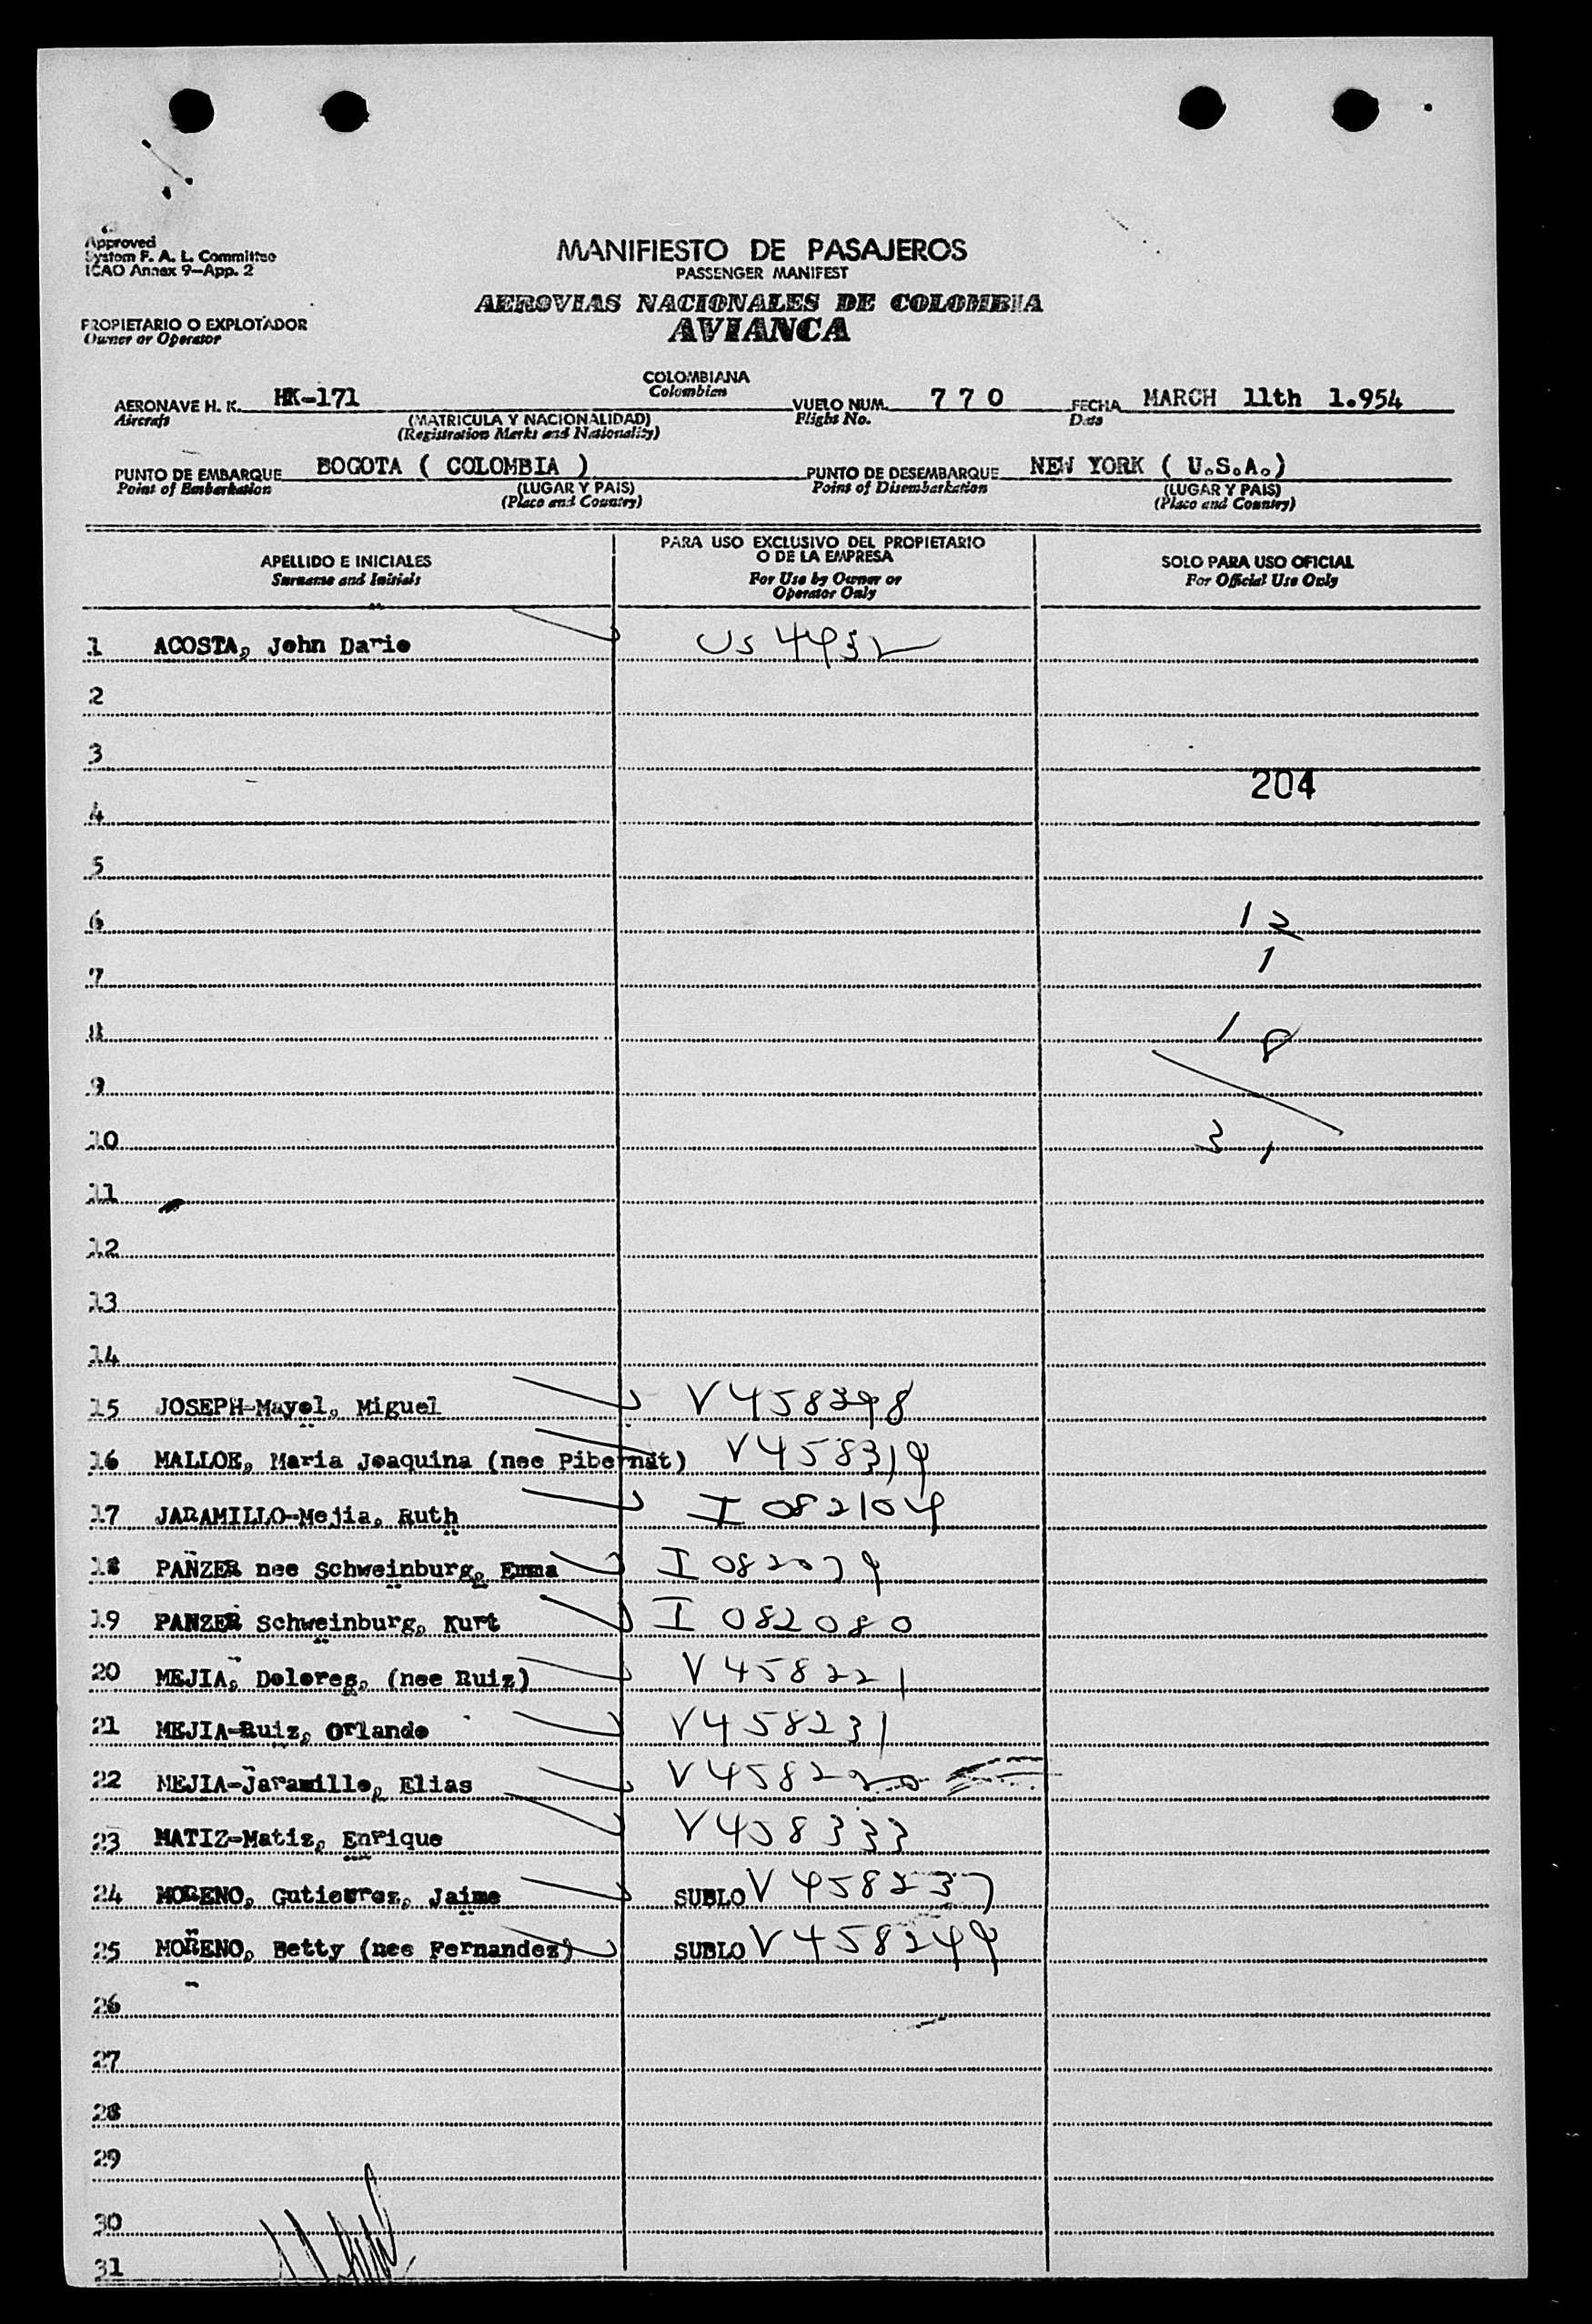 Approved
System F. A. L. Committee
ICAO Annex 9-App. 2
MANIFIESTO DE PASAJEROS
PASSENGER MANIFEST
AEROVIAS NACIONALES DE COLOMBIA
AVIANCA
PROPIETARIO O EXPLOTADOR
Owner or Operator
AERONAVE H. K. HK-171 COLOMBIANA VUELO NUM. 7 7 0 FECHA MARCH 11th 1.954
Aircraft (MATRICULA Y NACIONALIDAD) Colombian Flight No. Date
(Registration Marks and Nationality)
PUNTO DE EMBARQUE BOGOTA ( COLOMBIA ) PUNTO DE DESEMBARQUE NEW YORK ( U.S.A.)
Point of Embarkation (LUGAR Y PAIS) Point of Disembarkation (LUGAR Y PAIS)
(Place and Country) (Place and Country)
APELLIDO E INICIALES
Surname and Initials
PARA USO EXCLUSIVO DEL PROPIETARIO
O DE LA EMPRESA
For Use by Owner or
Operator Only
SOLO PARA USO OFICIAL
For Official Use Only
1 ACOSTA, John Dario US 4932
2
3
204
4
5
6 12
1
7
8 18
9
10 31
11
12
13
14
15 JOSEPH-Mayol, Miguel V458298
16 MALLOE, Maria Joaquina (nee Pibernat) V458319
17 JARAMILLO-Mejia, Ruth I 082104
18 PANZER nee Schweinburg, Emma I 082079
19 PANZER Schweinburg, Kurt I 082080
20 MEJIA, Dolores, (nee Ruiz) V458221
21 MEJIA-Ruiz, Orlando V458231
22 MEJIA-Jaramillo, Elias V458220
23 MATIZ-Matiz, Enrique V458333
24 MORENO, Gutierrez, Jaime SUBLO V458237
25 MORENO, Betty (nee Fernandez) SUBLO V458249
26
27
28
29
30
31